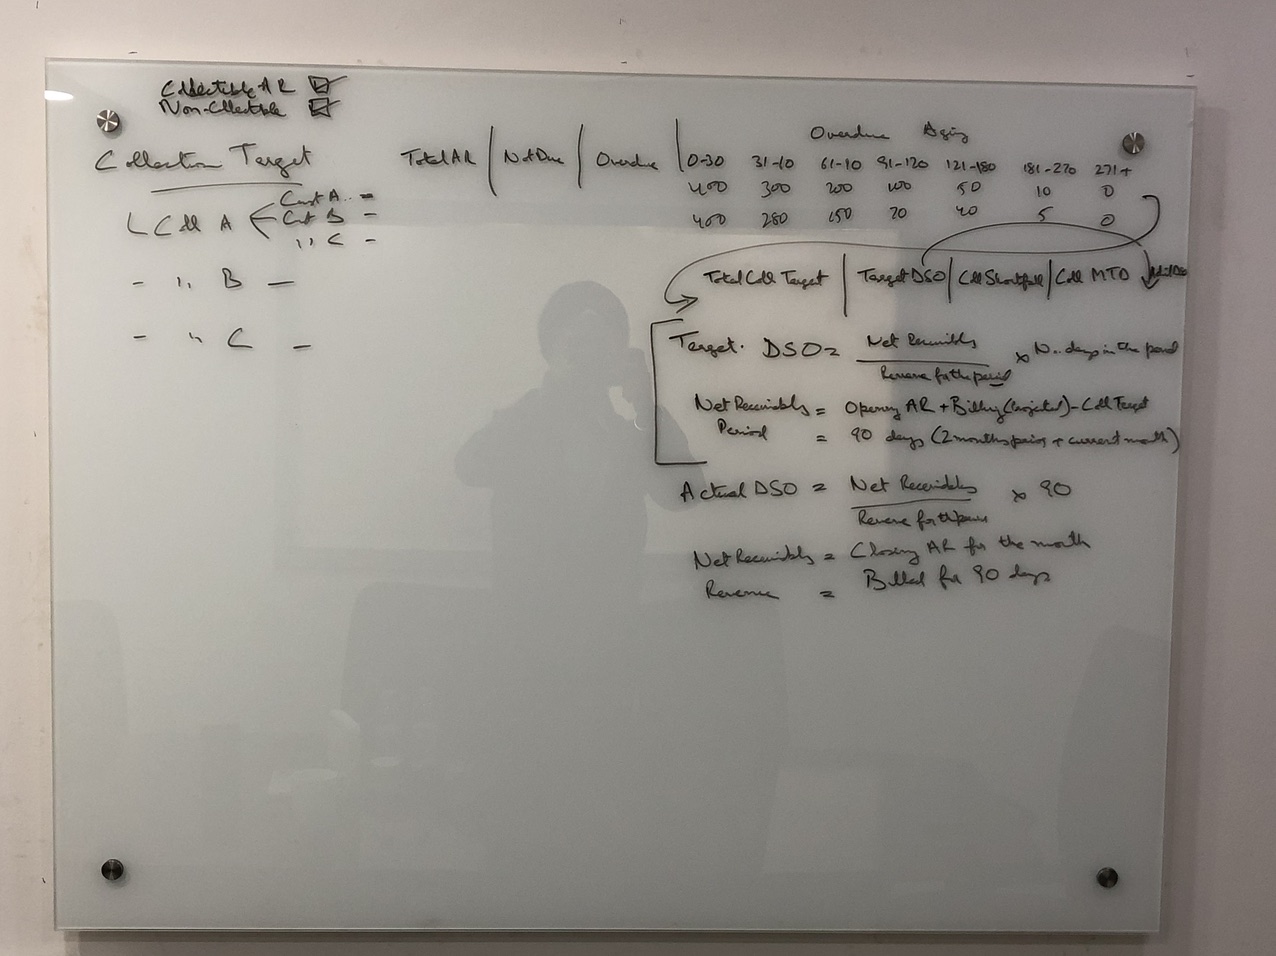 Collectible AR
Non-Collectible
Collection Target
Coll A
Cust A.. =
Cust B -
,, C -
- ,, B -
- ,, C -
Total AR | Not Due | Overdue |
Overdue Aging
0-30 31-60 61-90 91-120 121-180 181-270 271+
400 300 200 100 50 10 0
400 280 150 70 40 5 0
Total Coll Target | Target DSO | Coll Shortfall | Coll MTD
Target. DSO = Net Receivables / Revenue for the period x No. days in the period
Net Receivables = Opening AR + Billing (Projected) - Coll Target
Period = 90 days (2 months prior + current month)
Actual DSO = Net Receivables / Revenue for the period x 90
Net Receivables = Closing AR for the month
Revenue = Billed for 90 days